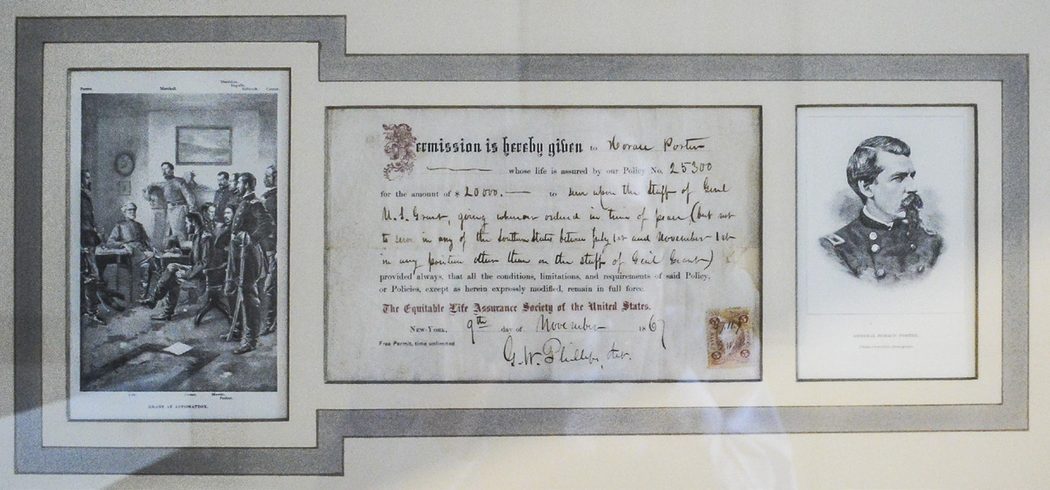 Porter.
Marshall.
Babcock.
GRANT AT APPOMATTOX.
Permission is hereby given to Horace Porter
whose life is assured by our Policy No. 25300
for the amount of $ 20000.— to serve upon the Staff of Genl
U. S. Grant, going wherever ordered in time of peace (but not
to serve in any of the Southern States between July 1st and November 1st
in any position other than on the staff of Genl Grant)
provided always, that all the conditions, limitations, and requirements of said Policy,
or Policies, except as herein expressly modified, remain in full force.
The Equitable Life Assurance Society of the United States.
New-York, 9th day of November 1867
Free Permit, time unlimited
G. W. Phillips,
GENERAL HORACE PORTER.